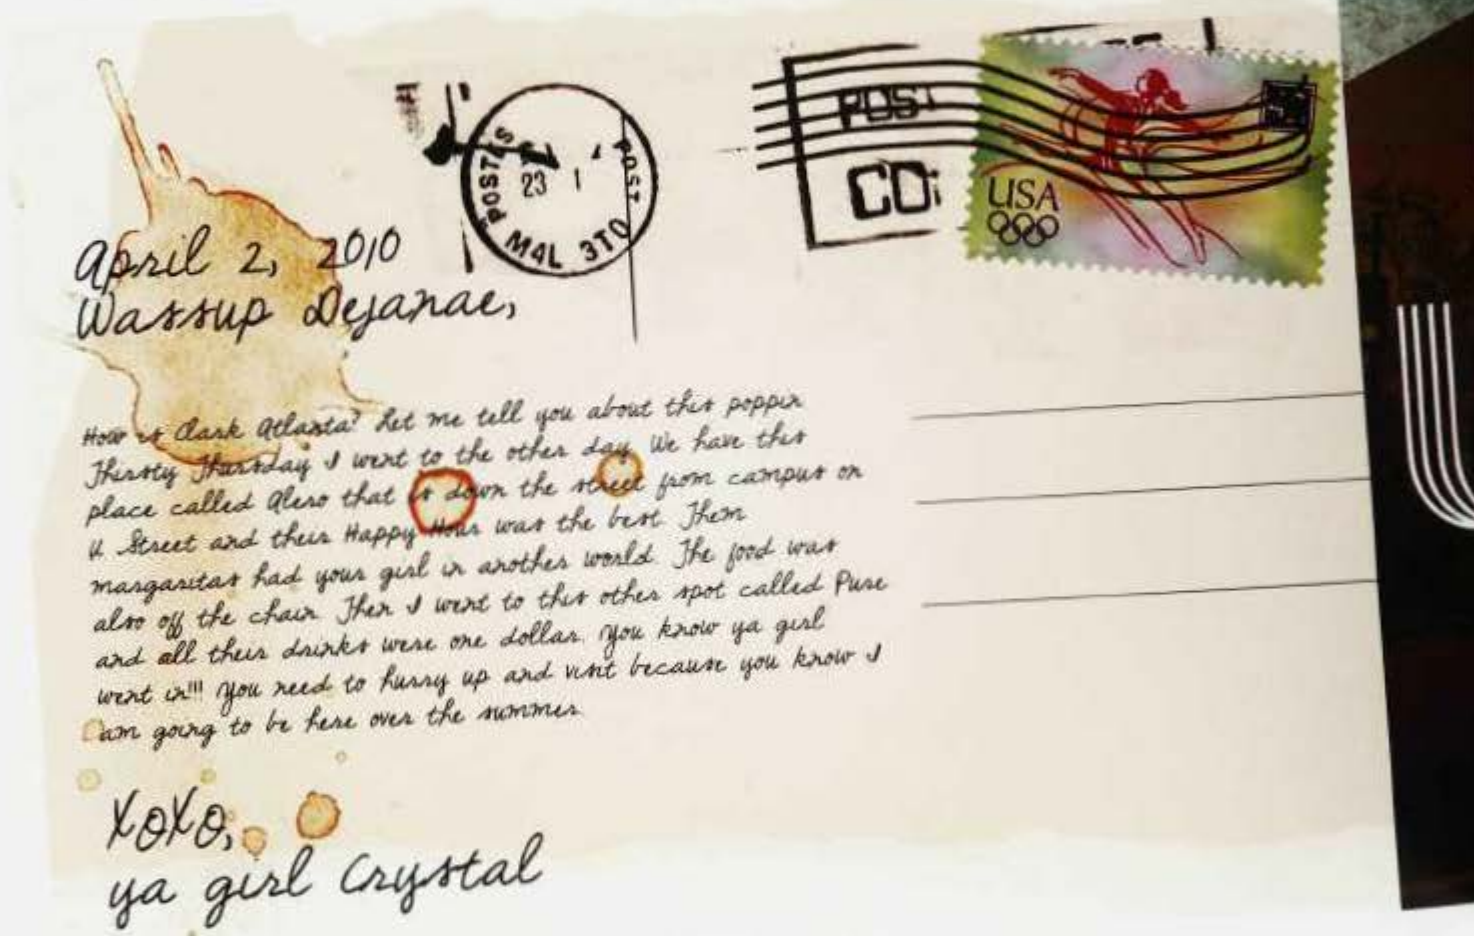 POSTES
23 1
POST
M4L 3T0
POST
CDi
USA
April 2, 2010
Wassup Dejanae,
How is Clark Atlanta? Let me tell you about this poppin
Thirsty Thursday I went to the other day. We have this
place called Alero that is down the street from campus on
U Street and their Happy Hour was the best. Them
margaritas had your girl in another world. The food was
also off the chain. Then I went to this other spot called Pure
and all their drinks were one dollar. You know ya girl
went in!!! You need to hurry up and visit because you know I
am going to be here over the summer.
XOXO,
ya girl Crystal